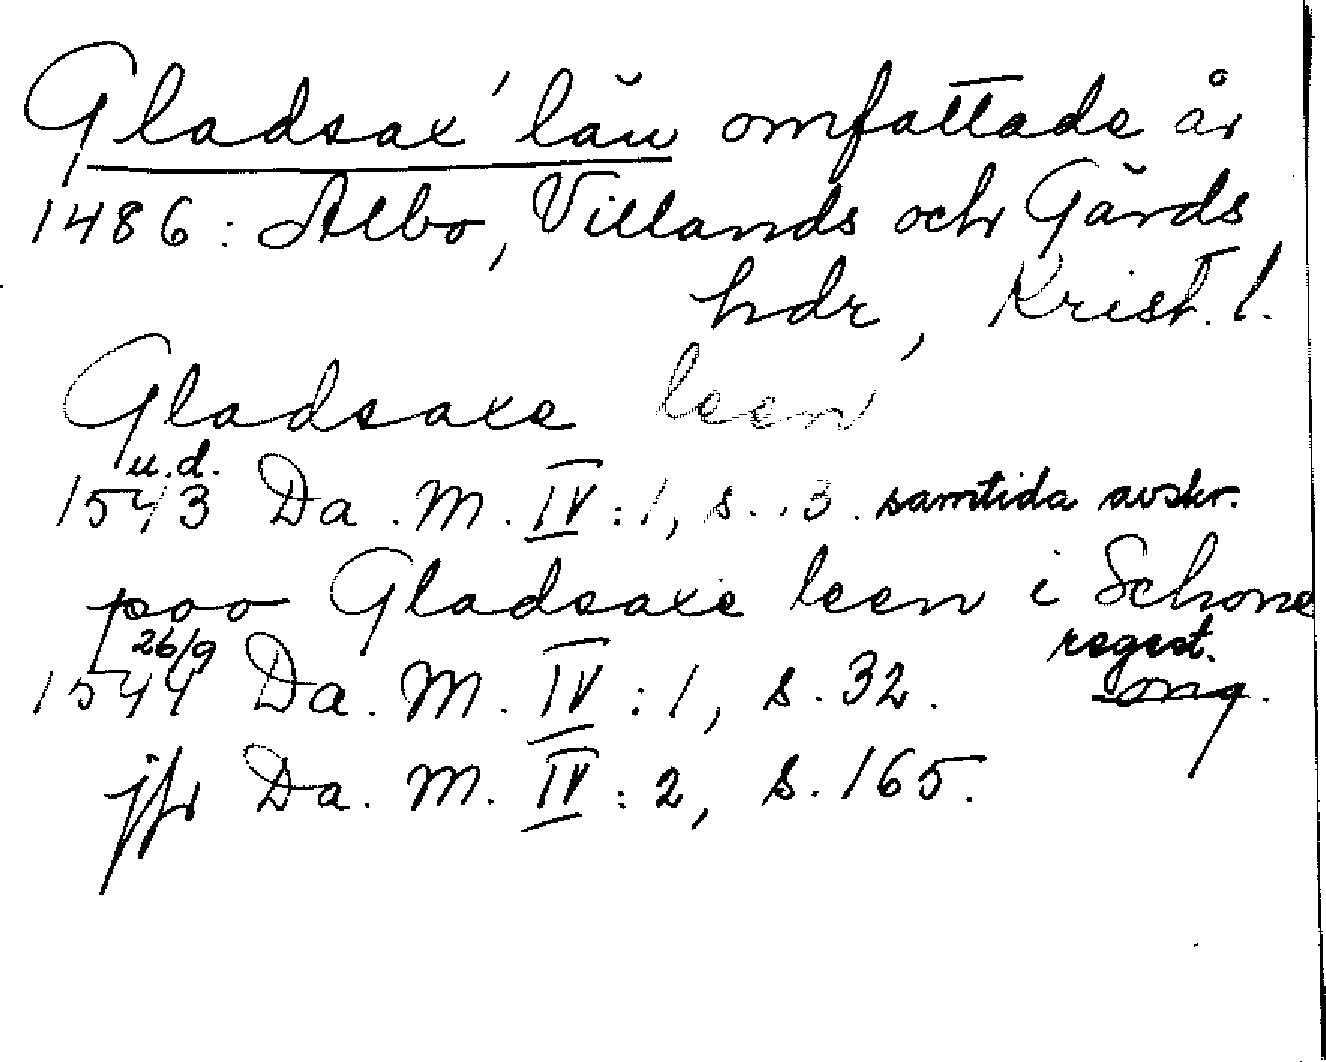 Gladsax' län omfattade år
1486: Albo, Villands och Gärds
hdr, Krist. l.
Gladsaxe leen
u.d.
1543 Da. M. IV:1, s. 13. samtida avskr.
poo Gladsaxe leen i Schone
26/9 regest.
1544 Da. M. IV:1, s. 32. orig.
jfr Da. M. IV:2, s. 165.